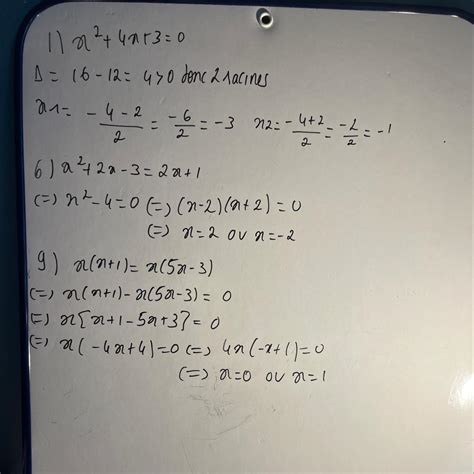 1) x²+4x+3=0
Δ= 16-12= 4>0 donc 2 racines
x1= (-4-2)/2 = -6/2 = -3   x2= (-4+2)/2 = -2/2 = -1
6) x²+2x-3=2x+1
(=) x²-4=0 (=) (x-2)(x+2)=0
(=) x=2 ou x=-2
9) x(x+1)=x(5x-3)
(=) x(x+1)-x(5x-3)=0
(=) x[x+1-5x+3]=0
(=) x(-4x+4)=0 (=) 4x(-x+1)=0
(=) x=0 ou x=1